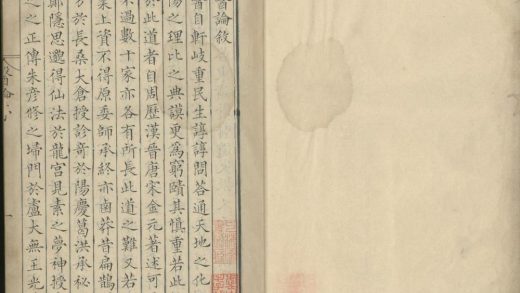 醫論敘
昔自軒岐重民生諄諄問答通天地之化
陽之理比之典謨更為窮賾其慎重若此
於此道者自周歷漢晉唐宋金元著述可
不過數十家亦各有所長此道之難又若
業上資不得原委師承終亦鹵莽昔扁鵲
方於長桑大倉授診奇於陽慶葛洪承秘
鄭隱思邈得仙法於龍宮見素之夢神授
之之正傳朱彥修之埽門於廬大無王光